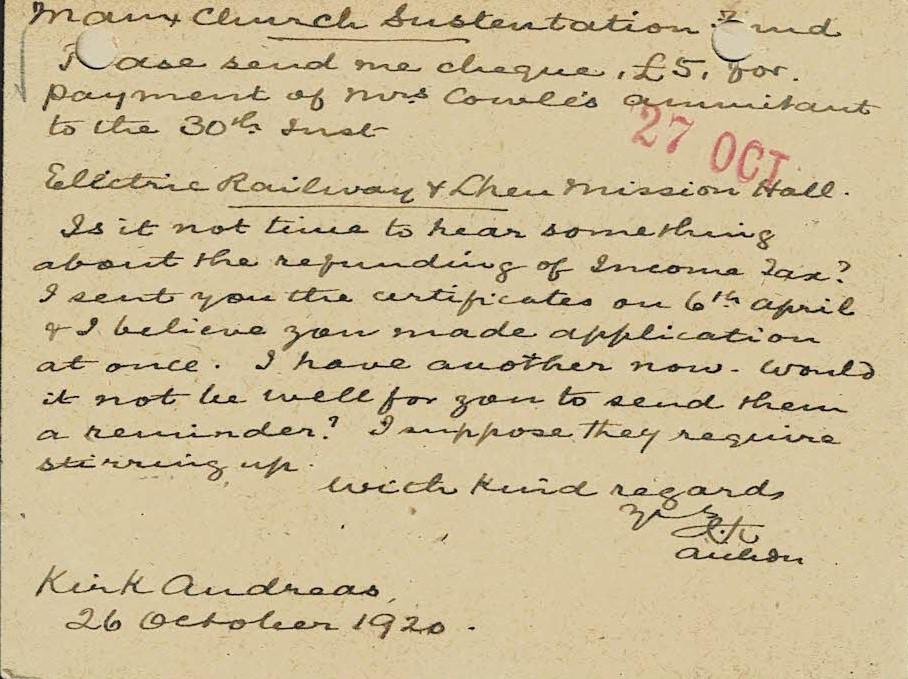 Manx Church Sustentation Fund
Please send me cheque, £5, for.
payment of Mrs Cowle's annuitant
to the 30th Inst
27 OCT
Electric Railway & Lhen Mission Hall.
Is it not time to hear something
about the refunding of Income Tax?
I sent you the certificates on 6th April
& I believe you made application
at once. I have another now. Would
it not be well for you to send them
a reminder? I suppose they require
stirring up.
With kind regards
yrs
Kirk Andreas,
26 October 1920.